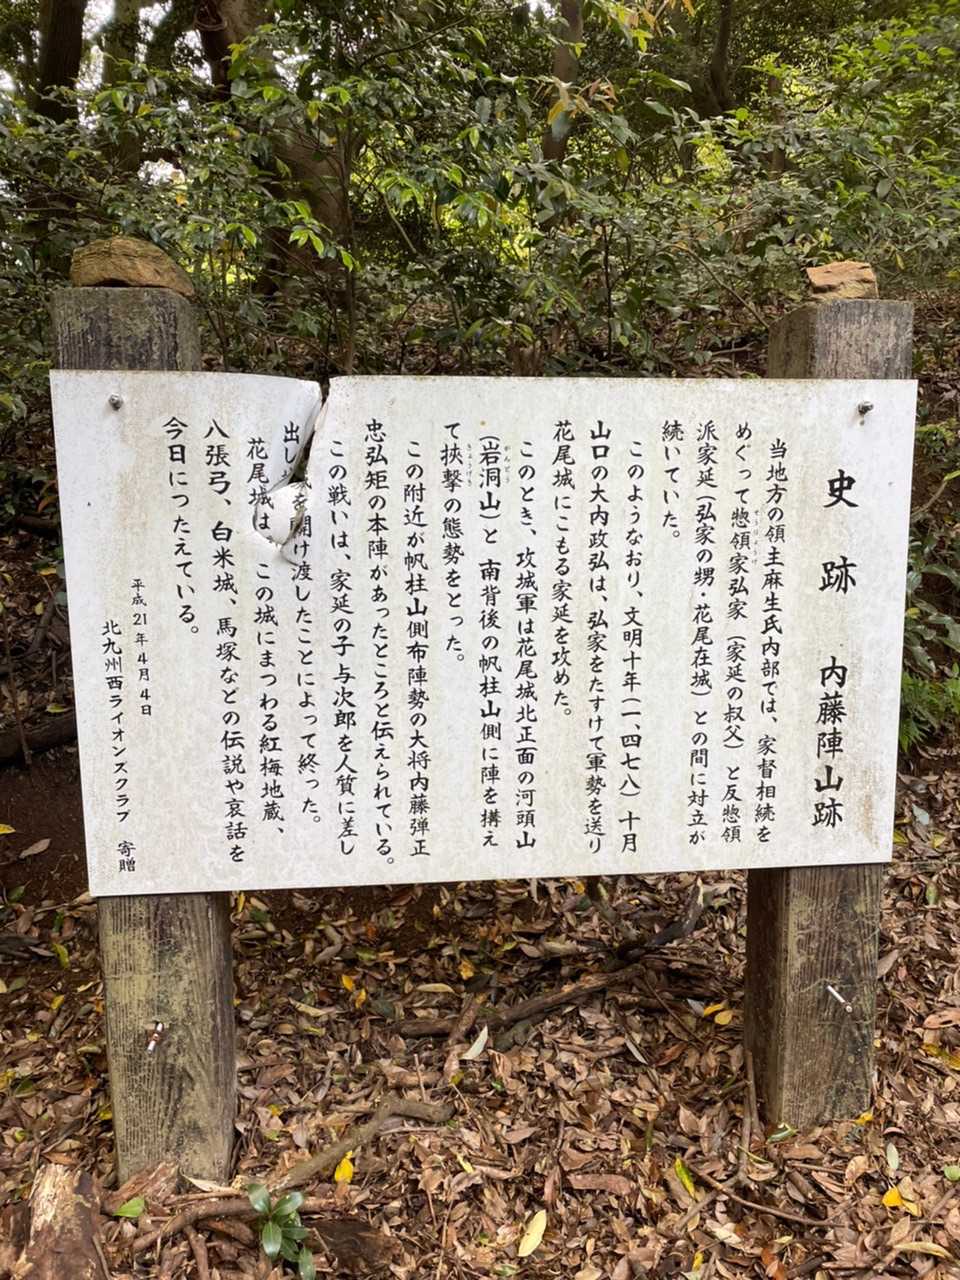 史跡 内藤陣山跡
当地方の領主麻生氏内部では、家督相続を
めぐって惣領家弘家(家延の叔父)と反惣領
そうりょうけ
派家延(弘家の甥・花尾在城)との間に対立が
続いていた。
このようなおり、文明十年(一、四七八)十月
山口の大内政弘は、弘家をたすけて軍勢を送り
花尾城にこもる家延を攻めた。
このとき、攻城軍は花尾城北正面の河頭山
(岩洞山)と 南背後の帆柱山側に陣を構え
がんどう
て挾撃の態勢をとった。
きょうげき
この附近が帆柱山側布陣勢の大将内藤弾正
忠弘矩の本陣があったところと伝えられている。
この戦いは、家延の子 与次郎を人質に差し
出し を開け渡したことによって終った。
花尾城は この城にまつわる紅梅地蔵、
八張弓、白米城、馬塚などの伝説や哀話を
今日につたえている。
平成21年4月4日
北九州西ライオンズクラブ 寄贈